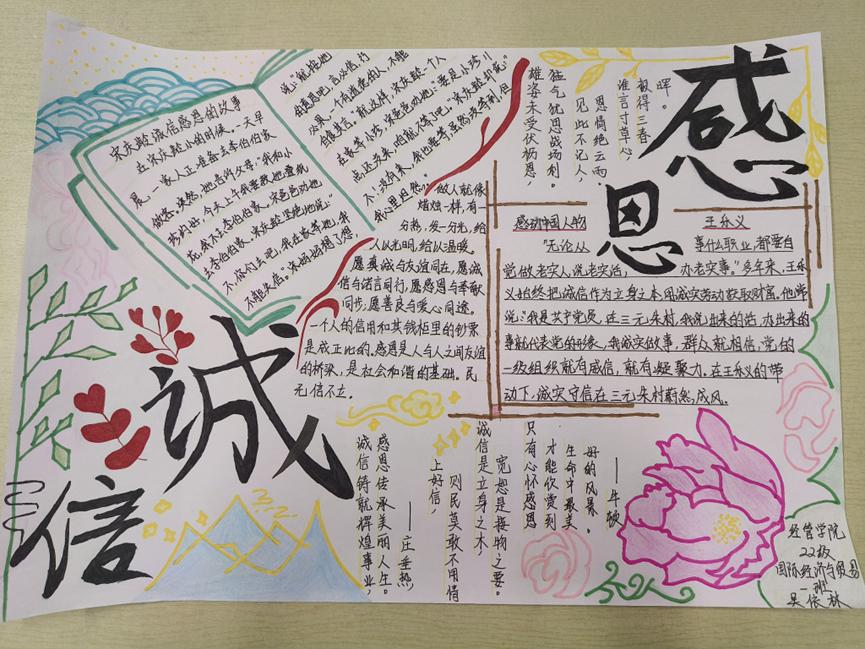 感恩
诚信
宋庆龄诚信感恩的故事
在宋庆龄小的时候。一天早
晨,一家人正准备去李伯伯家
做客。突然,她告诉父母:“我和小
珍约好,今天上午我要教她叠纸
花,我不去李伯伯家。宋爸爸劝她
去李伯伯家,宋庆龄坚决地说:“
不,你们去吧,我在家等她,我
不能失信。”宋妈妈想了想,
说:“就按她
的意思吧,言必信,行
必果。一个有道德的人,不能
自食其言。”就这样,宋庆龄一个人
在家等小珍,宋爸爸劝她:“要是小珍
做人就像
蜡烛一样,有一
分热,发一分光,给
人以光明,给以温暖。
愿真诚与友谊同在,愿诚
信与诺言同行,愿感恩与奉献
同步,愿善良与爱心同途。
一个人的信用和其钱柜里的钞票
是成正比的。感恩是人与人之间友谊
的桥梁,是社会和谐的基础。民
无信不立。
晖。
报得三春
谁言寸草心,
恩情绝云雨,
见此不记人,
猛气犹思战场利。
雄姿未受伏枥恩,
感动中国人物 王乐义
“无论从事什么职业,都要自
觉做老实人,说老实话,办老实事。”多年来,王乐
义始终把诚信作为立身之本用诚实劳动获取财富。他常
说:“我是共产党员,在三元朱村,我说出来的话,办出来的
事就代表党的形象,我诚实做事,群众就相信,党的
一级组织就有威信,就有凝聚力。在王乐义的带
动下,诚实守信在三元朱村蔚然成风。
——牛顿
好的风景。
生命中最美
才能欣赏到
只有心怀感恩
宽恕是接物之要。
诚信是立身之本,
则民莫敢不用情
上好信,
——庄垂熱
感恩传承美丽人生。
诚信铸就辉煌事业,
经管学院
22级
国际经济与贸易
一班
吴依林